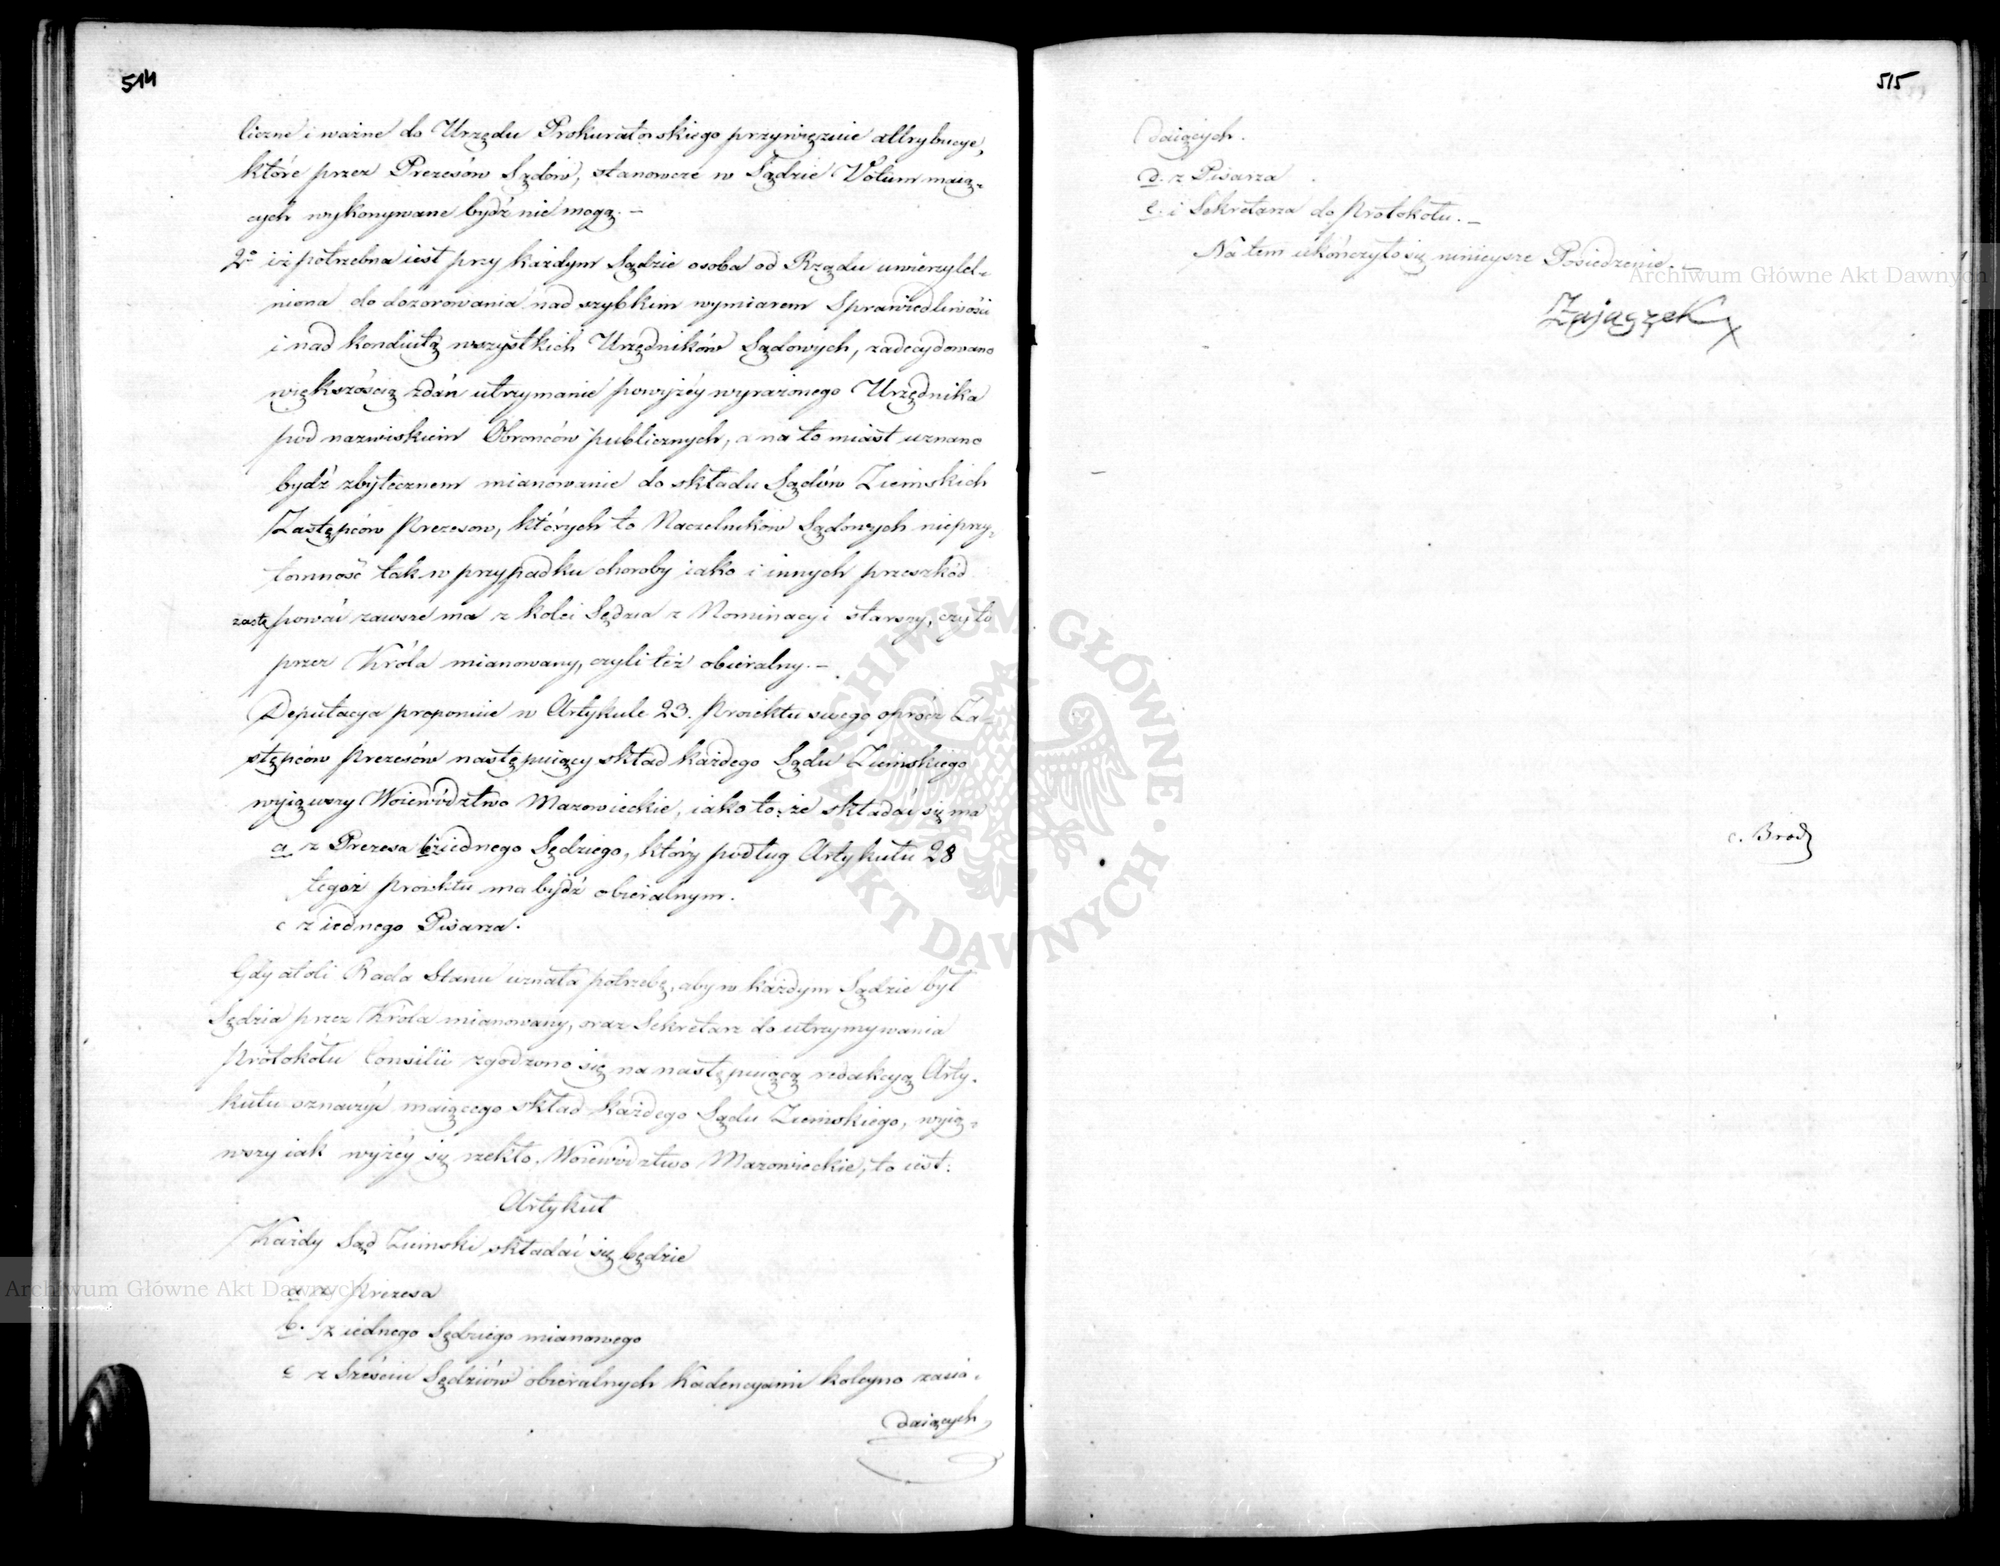 514
liczne i ważne do Urzędu Prokuratorskiego przywięzuie attrybucye,
które przez Prezesów Sądów, stanowcze w Sądzie Votum maią-
cych wykonywane bydź nie mogą. —
2° iż potrzebna iest przy każdym Sądzie osoba od Rządu uwierzytel-
niona do dozorowania nad szybkim wymiarem Sprawiedliwości
i nad konduitą wszystkich Urzędników Sądowych, zadecydowano
większością zdań utrzymanie powyżéy wyrażonego Urzędnika
pod nazwiskiem Obrońców publicznych, a na to miast uznano
bydź zbytecznem mianowanie do składu Sądów Ziemskich
Zastępców Prezesow, których to Naczelników Sądowych nieprzy-
tomność tak w przypadku choroby iako i innych przeszkód
zastępować zawsze ma z kolei Sędzia z Nominacyi starszy, czy to
przez Króla mianowany, czyli też obieralny. —
Deputacya proponuie w Artykule 23. Proiektu swego oprócz Za-
stępców Prezesów następuiący skład każdego Sądu Ziemskiego
wyiąwszy Woiewództwo Mazowieckie, iako to: że składać się ma
a z Prezesa b z iednego Sędziego, który podług Artykułu 28
tegoż proiektu ma bydź obieralnym.
c z iednego Pisarza.
Gdy atoli Rada Stanu uznała potrzebę, aby w każdym Sądzie był
Sędzia przez Króla mianowany, oraz Sekretarz do utrzymywania
Protokółu Consilii zgodzono się na następuiącą redakcyą Arty-
kułu oznaczyć maiącego skład każdego Sądu Ziemskiego, wyią-
wszy iak wyżéy się rzekło, Woiewództwo Mazowieckie, to iest:
Artykuł
Każdy Sąd Ziemski składać się będzie
a z Prezesa
b. z iednego Sędziego mianowego
c z Sześciu Sędziów obieralnych Kadencyami koleyno zasia-
daiących
515
daiących.
d. z Pisarza
e. i Sekretarza do Protokółu. —
Na tem ukończyło się ninieysze Posiedzenie. —
Zajączek
c. Brodz
Archiwum Główne Akt Dawnych
Archiwum Główne Akt Dawnych
ARCHIWUM GŁÓWNE · AKT DAWNYCH ·